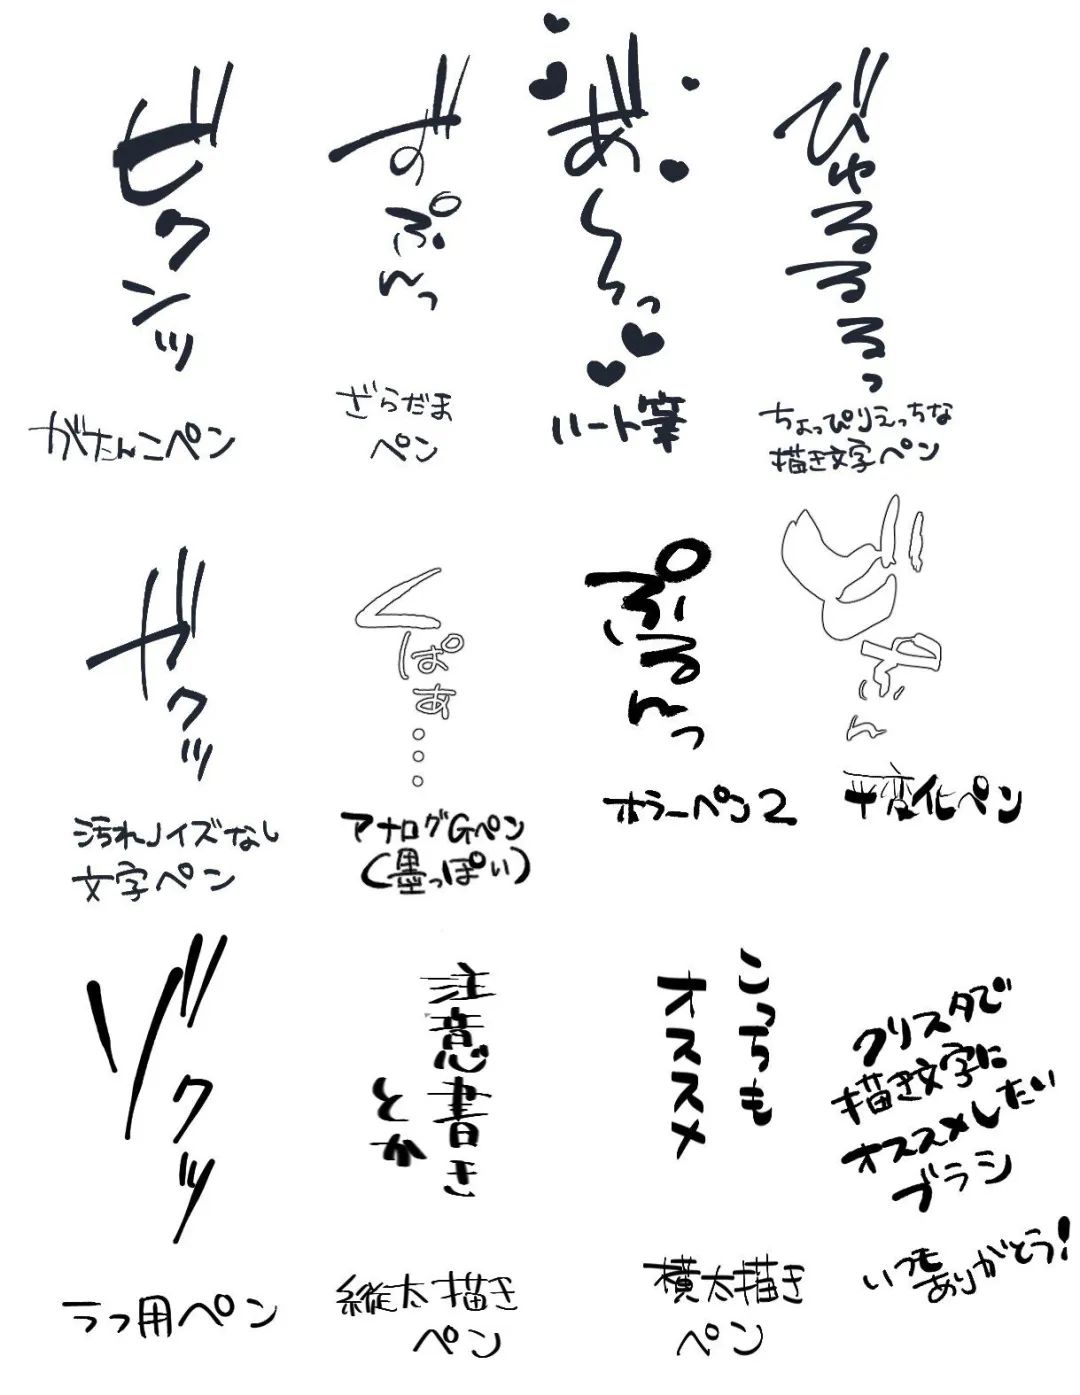 ビクンッ
がたんこペン
ずぷんっ
ざらだま
ペン
あ゛〜〜っ
ハート筆
びゅるるるっ
ちょっぴりえっちな
描き文字ペン
ザクッ
汚れノイズなし
文字ペン
くぱぁ…
アナログGペン
(墨っぽい)
ぷるんっ
ホラーペン2
ん
平変化ペン
ゾクッ
ラフ用ペン
注意書き
とか
縦太描き
ペン
こっちも
オススメ
横太描き
ペン
クリスタで
描き文字に
オススメしたい
ブラシ
いつも
ありがとう!